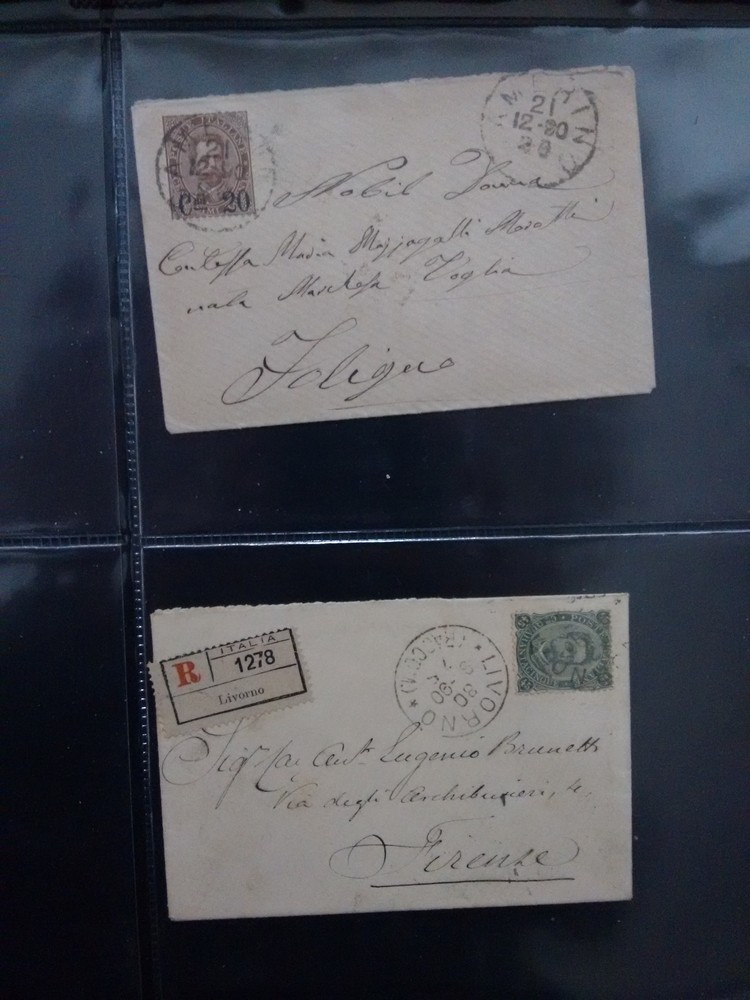 Cmi 20
21
12-90
Nobil Donna
Contessa Maria Mazzagalli Moratti
nata Marchesa Voglia
Foligno
ITALIA
R 1278
Livorno
LIVORNO
Eugenio Brunetti
Via degli Archibusieri, 4,
Firenze